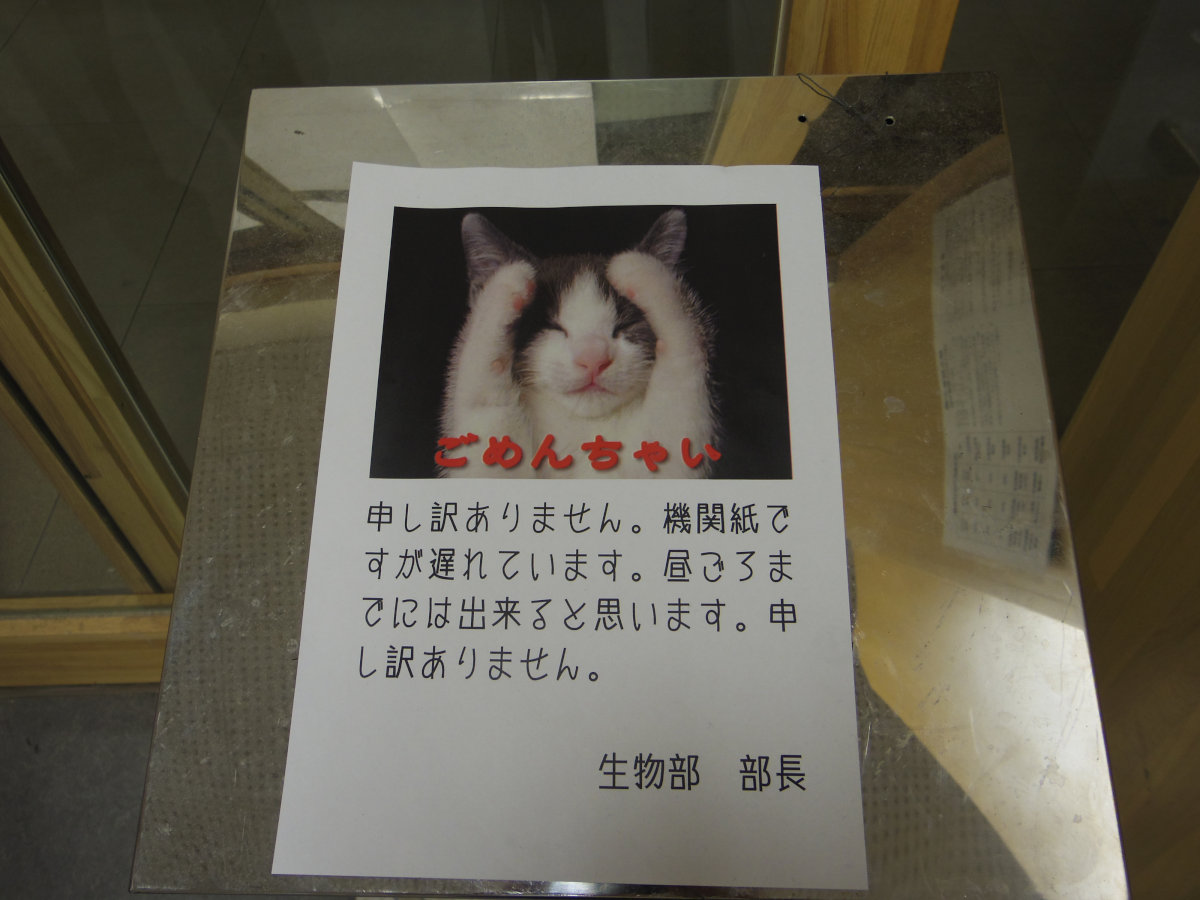 ごめんちゃい
申し訳ありません。機関紙で
すが遅れています。昼ごろま
でには出来ると思います。申
し訳ありません。
生物部　部長